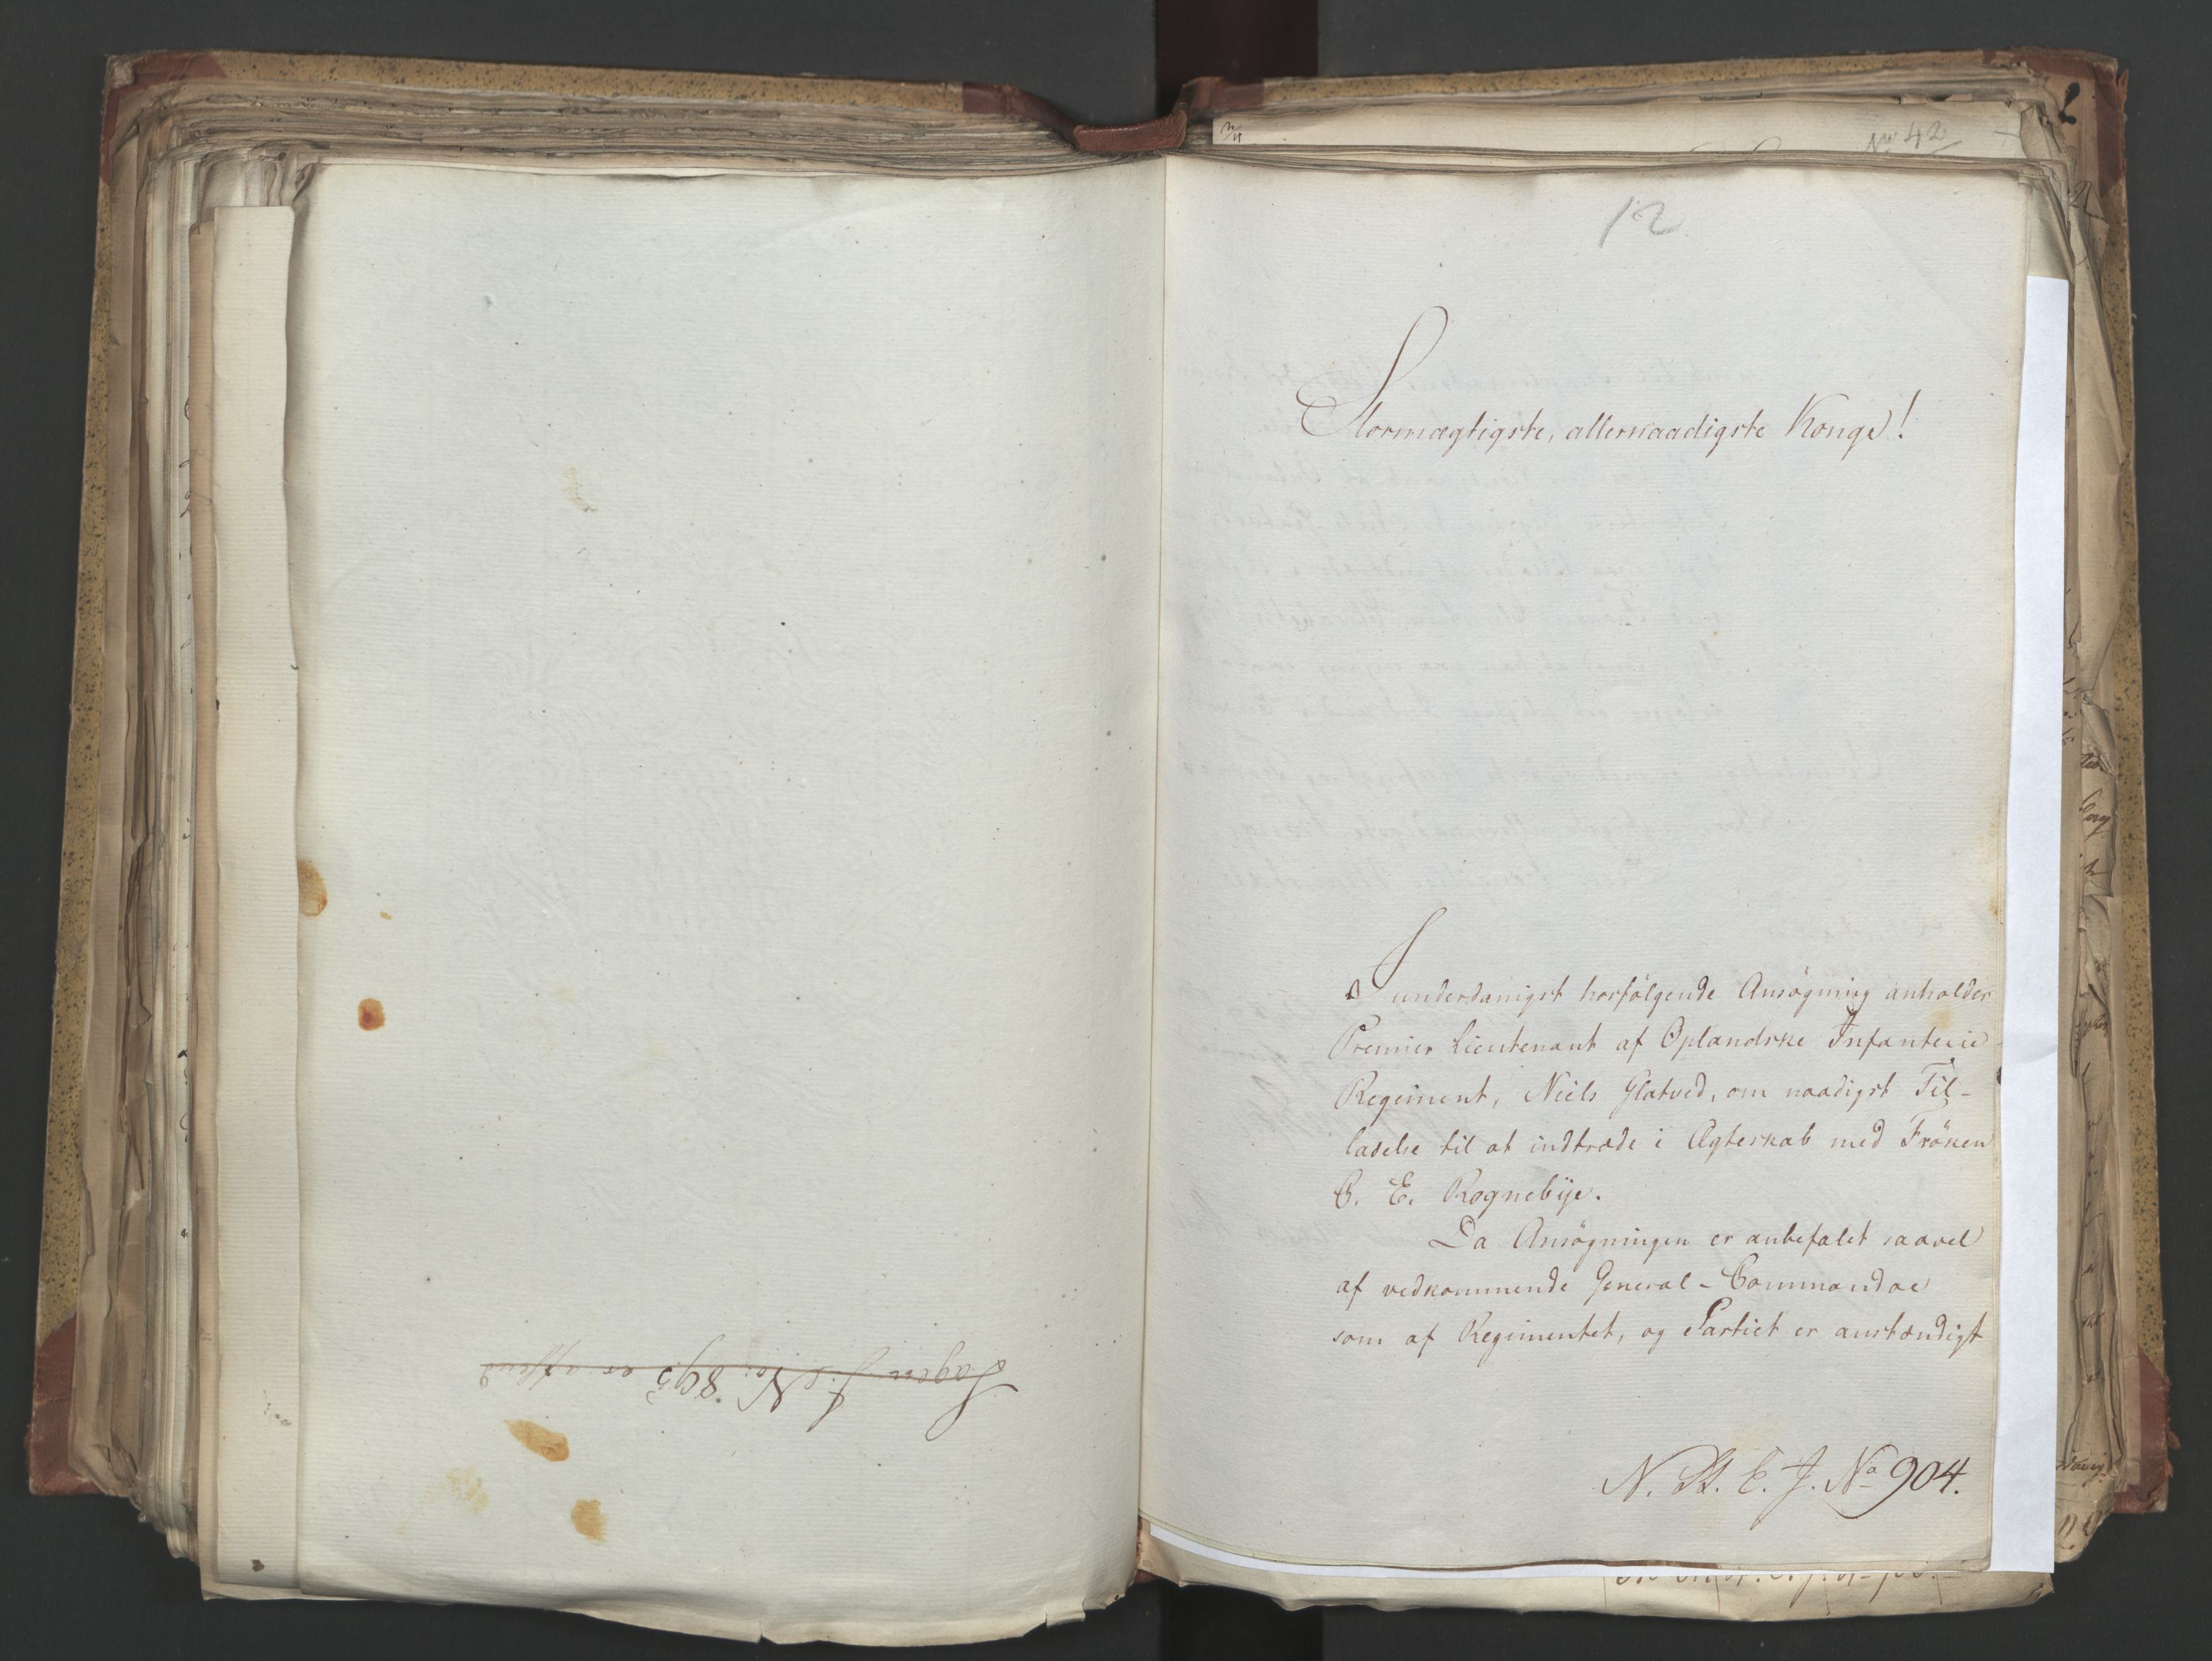 Sagen J. No: 895 er affend
No 42
12
Stormægtigste, allernaadigste Konge!
I underdanigst hosfølgende Ansøgning anholder
Premier Lieutenant af Oplandske Infanterie
Regiment, Niels Glatved, om naadigst Til-
ladelse til at indtræde i Ægteskab med Frøken
C. E. Rognebÿe.
Da Ansøgningen er anbefalet saavel
af vedkommende General-Commandoe
som af Regimentet, og Partiet er anstændigt
N. St. E. J. No 904.